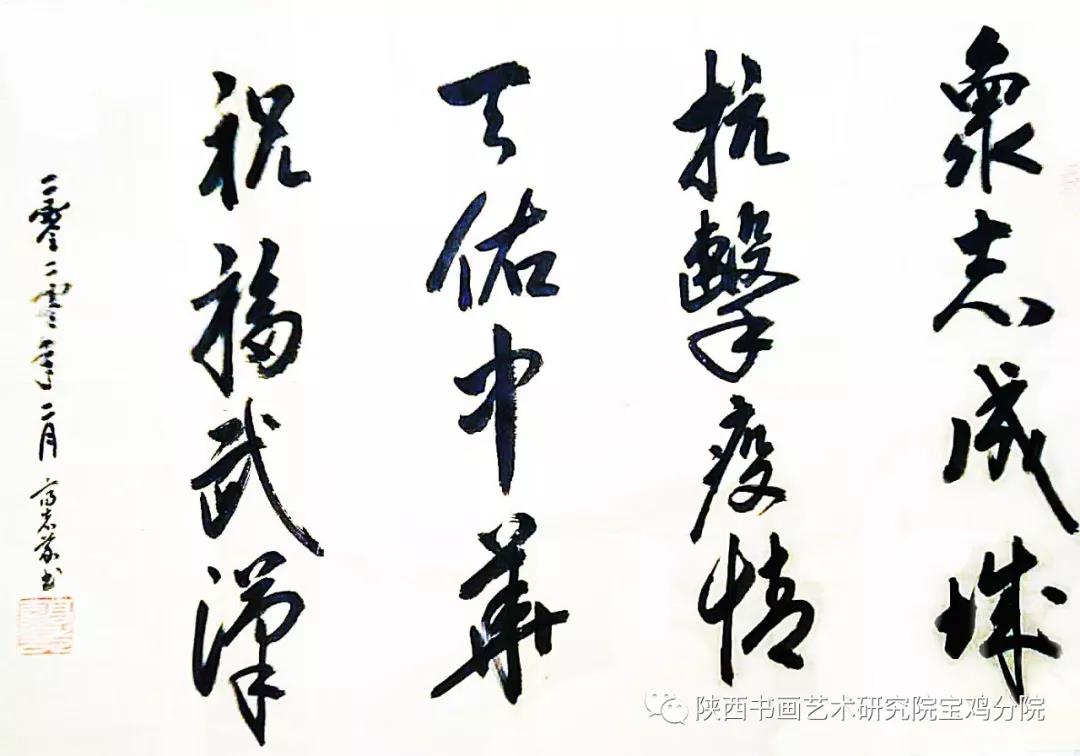 衆志成城
抗擊疫情
天佑中華
祝福武漢
二零二零年二月
書
陕西书画艺术研究院宝鸡分院